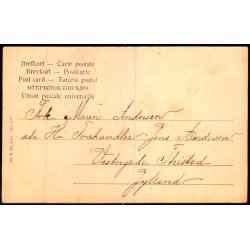 Brefkort — Carte postale
Brevkort — Postkarte
Post card — Tarjeta postal
ОТКРЫТОЕ ПИСЬМО
Union postale universelle
Frk Maren Andersen
adr Hr Træhandler Jens Andersen
Vestergade Thisted
Jylland.